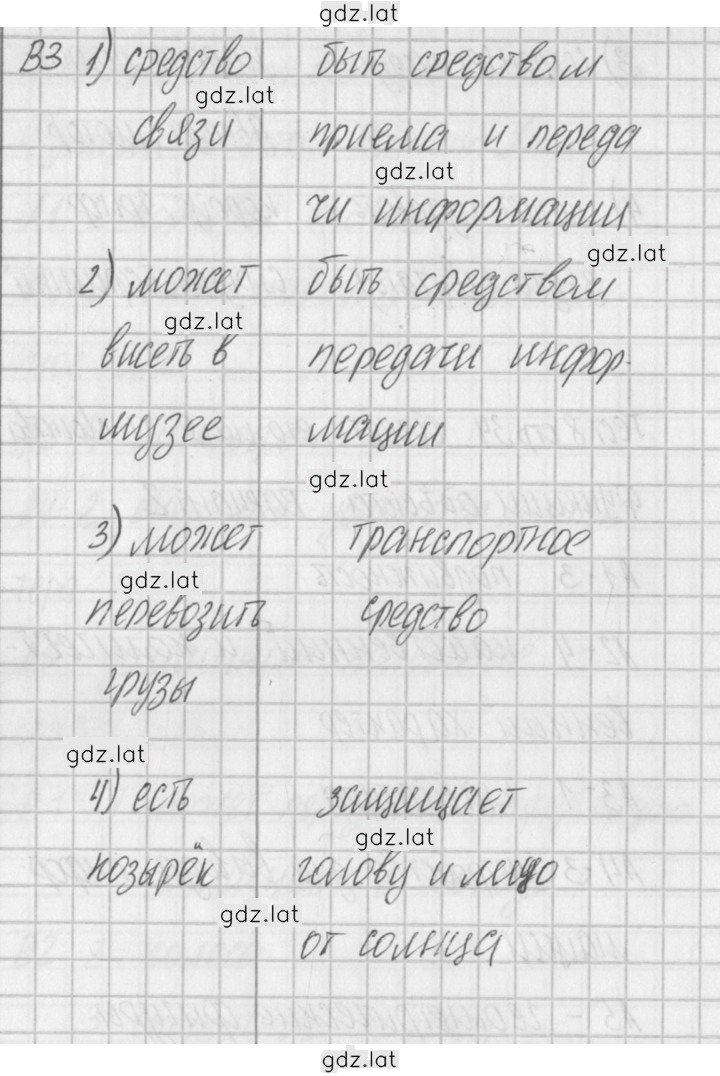 gdz.lat
В3 1) средство быть средством
gdz.lat
связи приема и переда
gdz.lat
чи информации
gdz.lat
2) может быть средством
gdz.lat
висеть в передачи инфор-
музее мации
gdz.lat
3) может транспортное
gdz.lat
перевозить средство
грузы
gdz.lat
4) есть защищает
gdz.lat
козырёк голову и лицо
gdz.lat
от солнца
gdz.lat